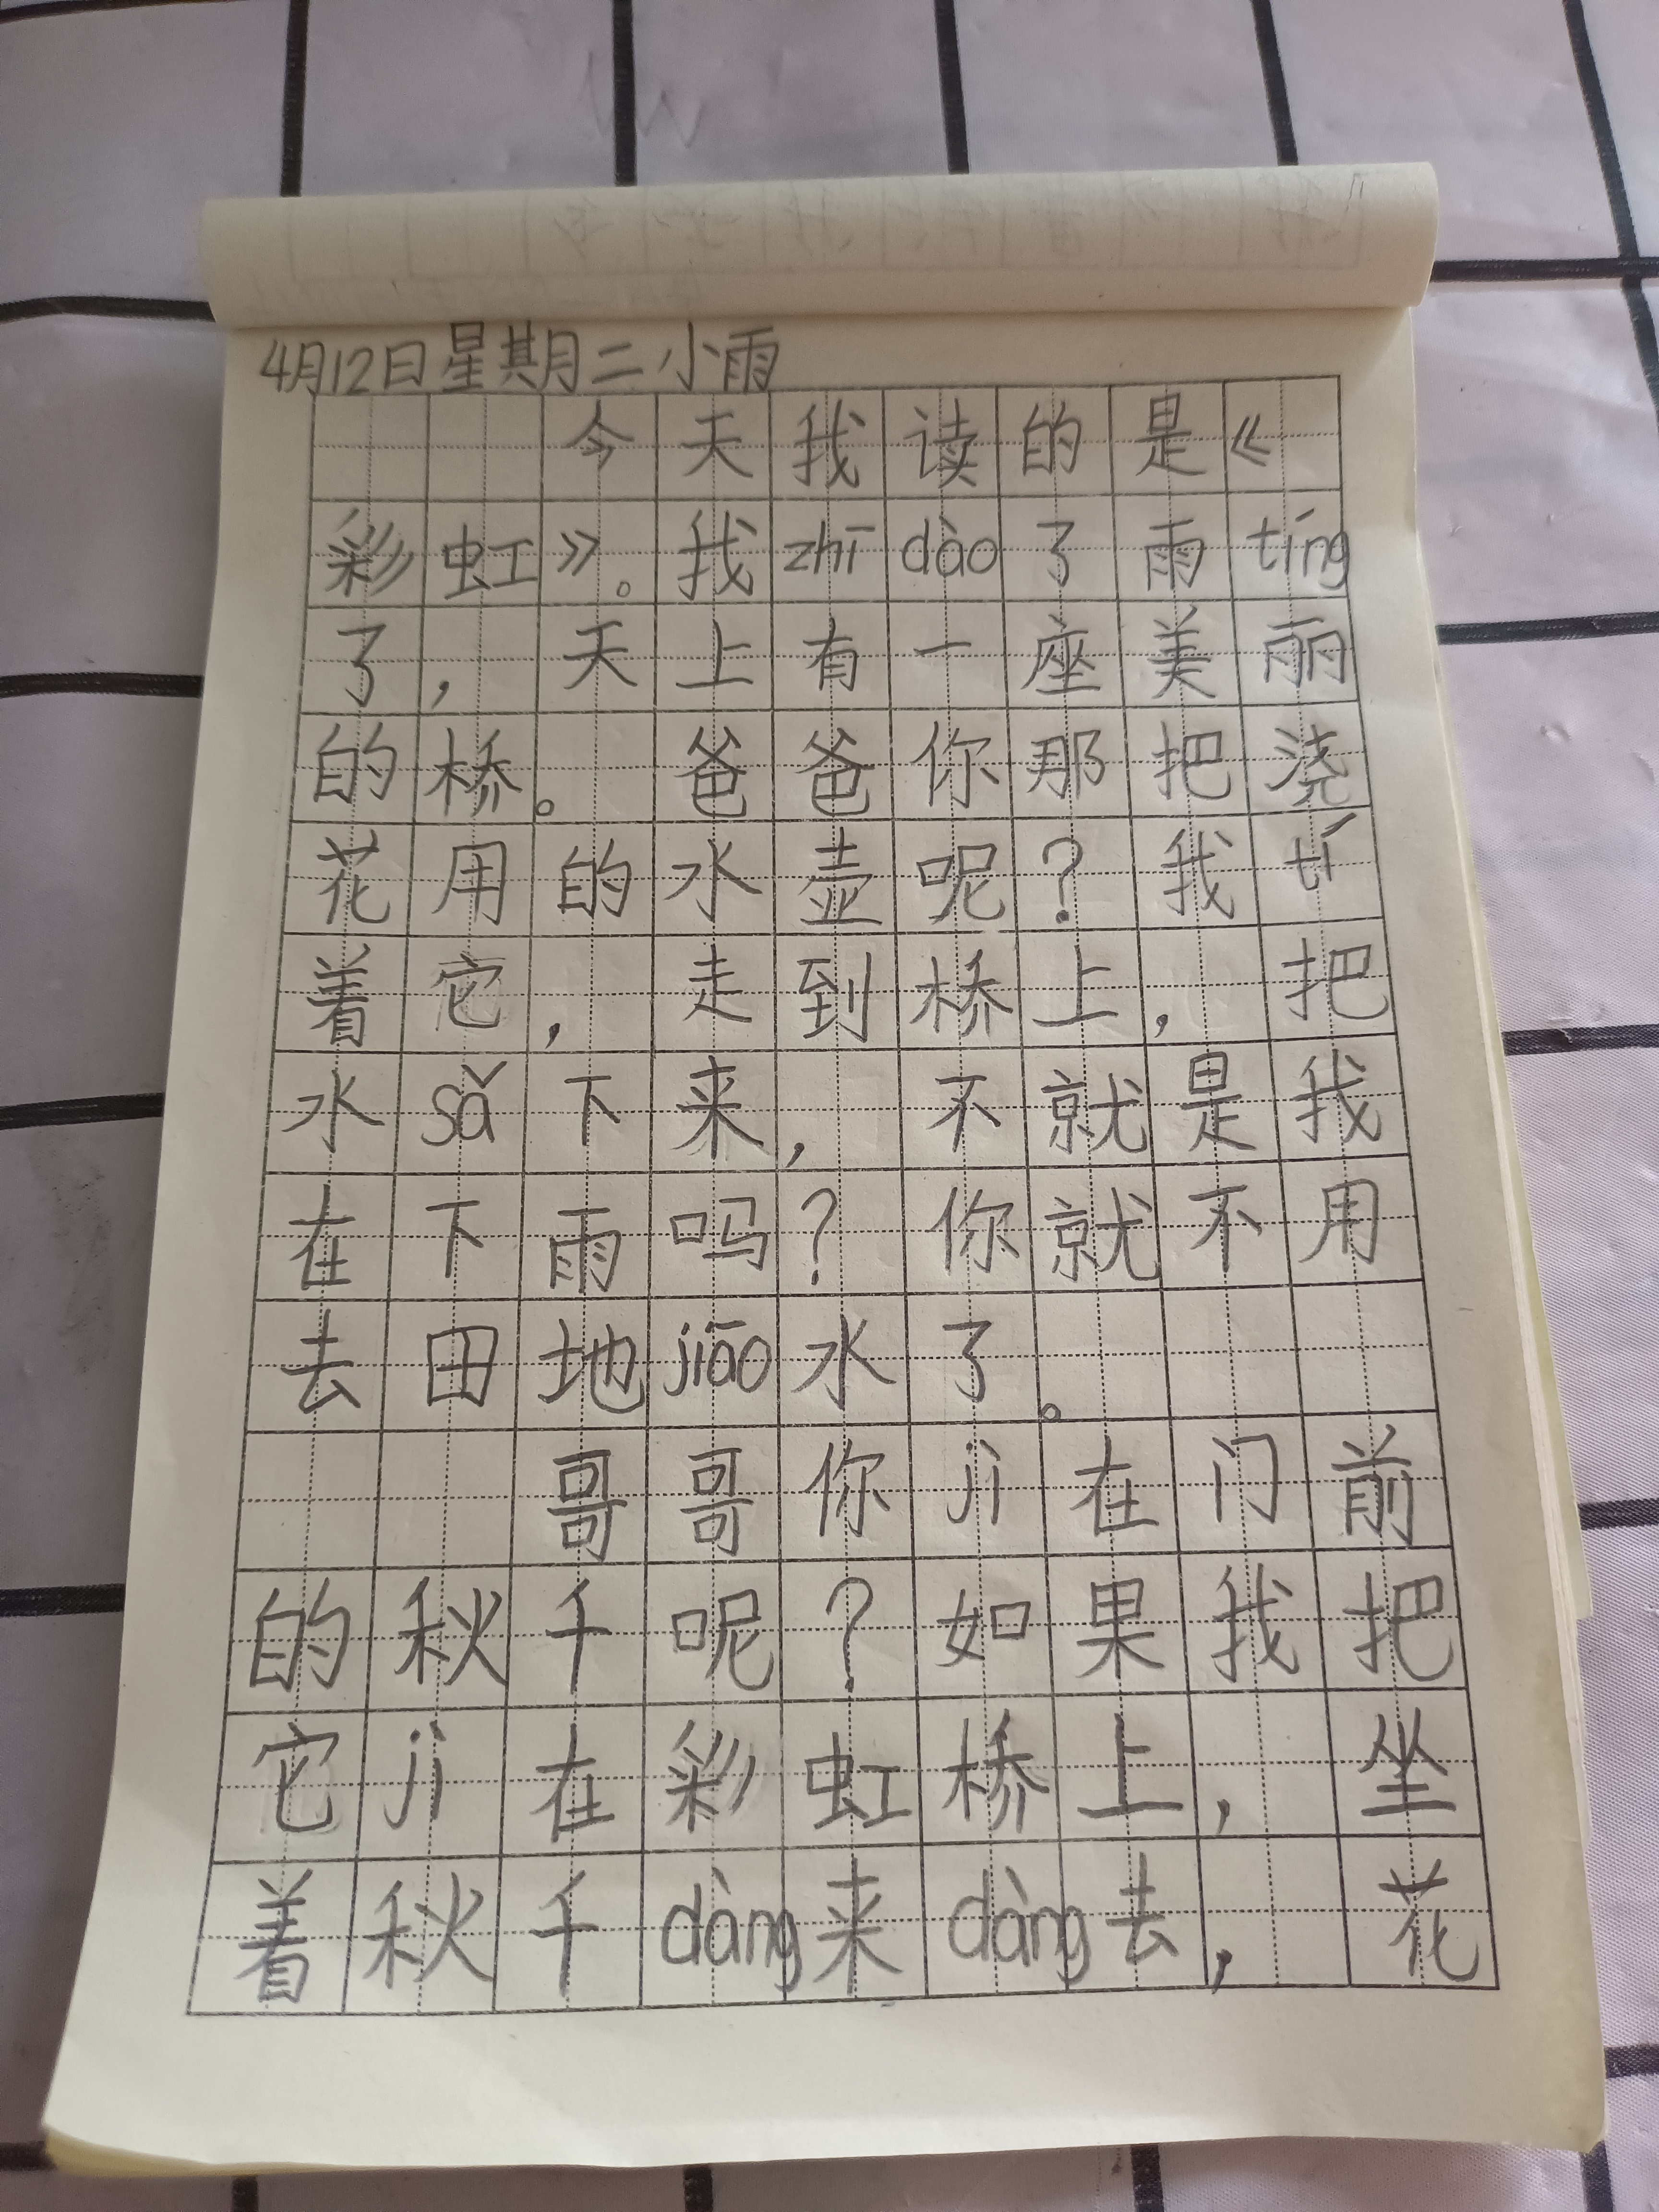 4月12日星期二小雨
今天我读的是《
彩虹》。我zhī dào了雨tíng
了，天上有一座美丽
的桥。爸爸你那把浇
花用的水壶呢？我tí
着它，走到桥上，把
水sǎ下来，不就是我
在下雨吗？你就不用
去田地jiāo水了。
哥哥你jì在门前
的秋千呢？如果我把
它jì在彩虹桥上，坐
着秋千dàng来dàng去，花